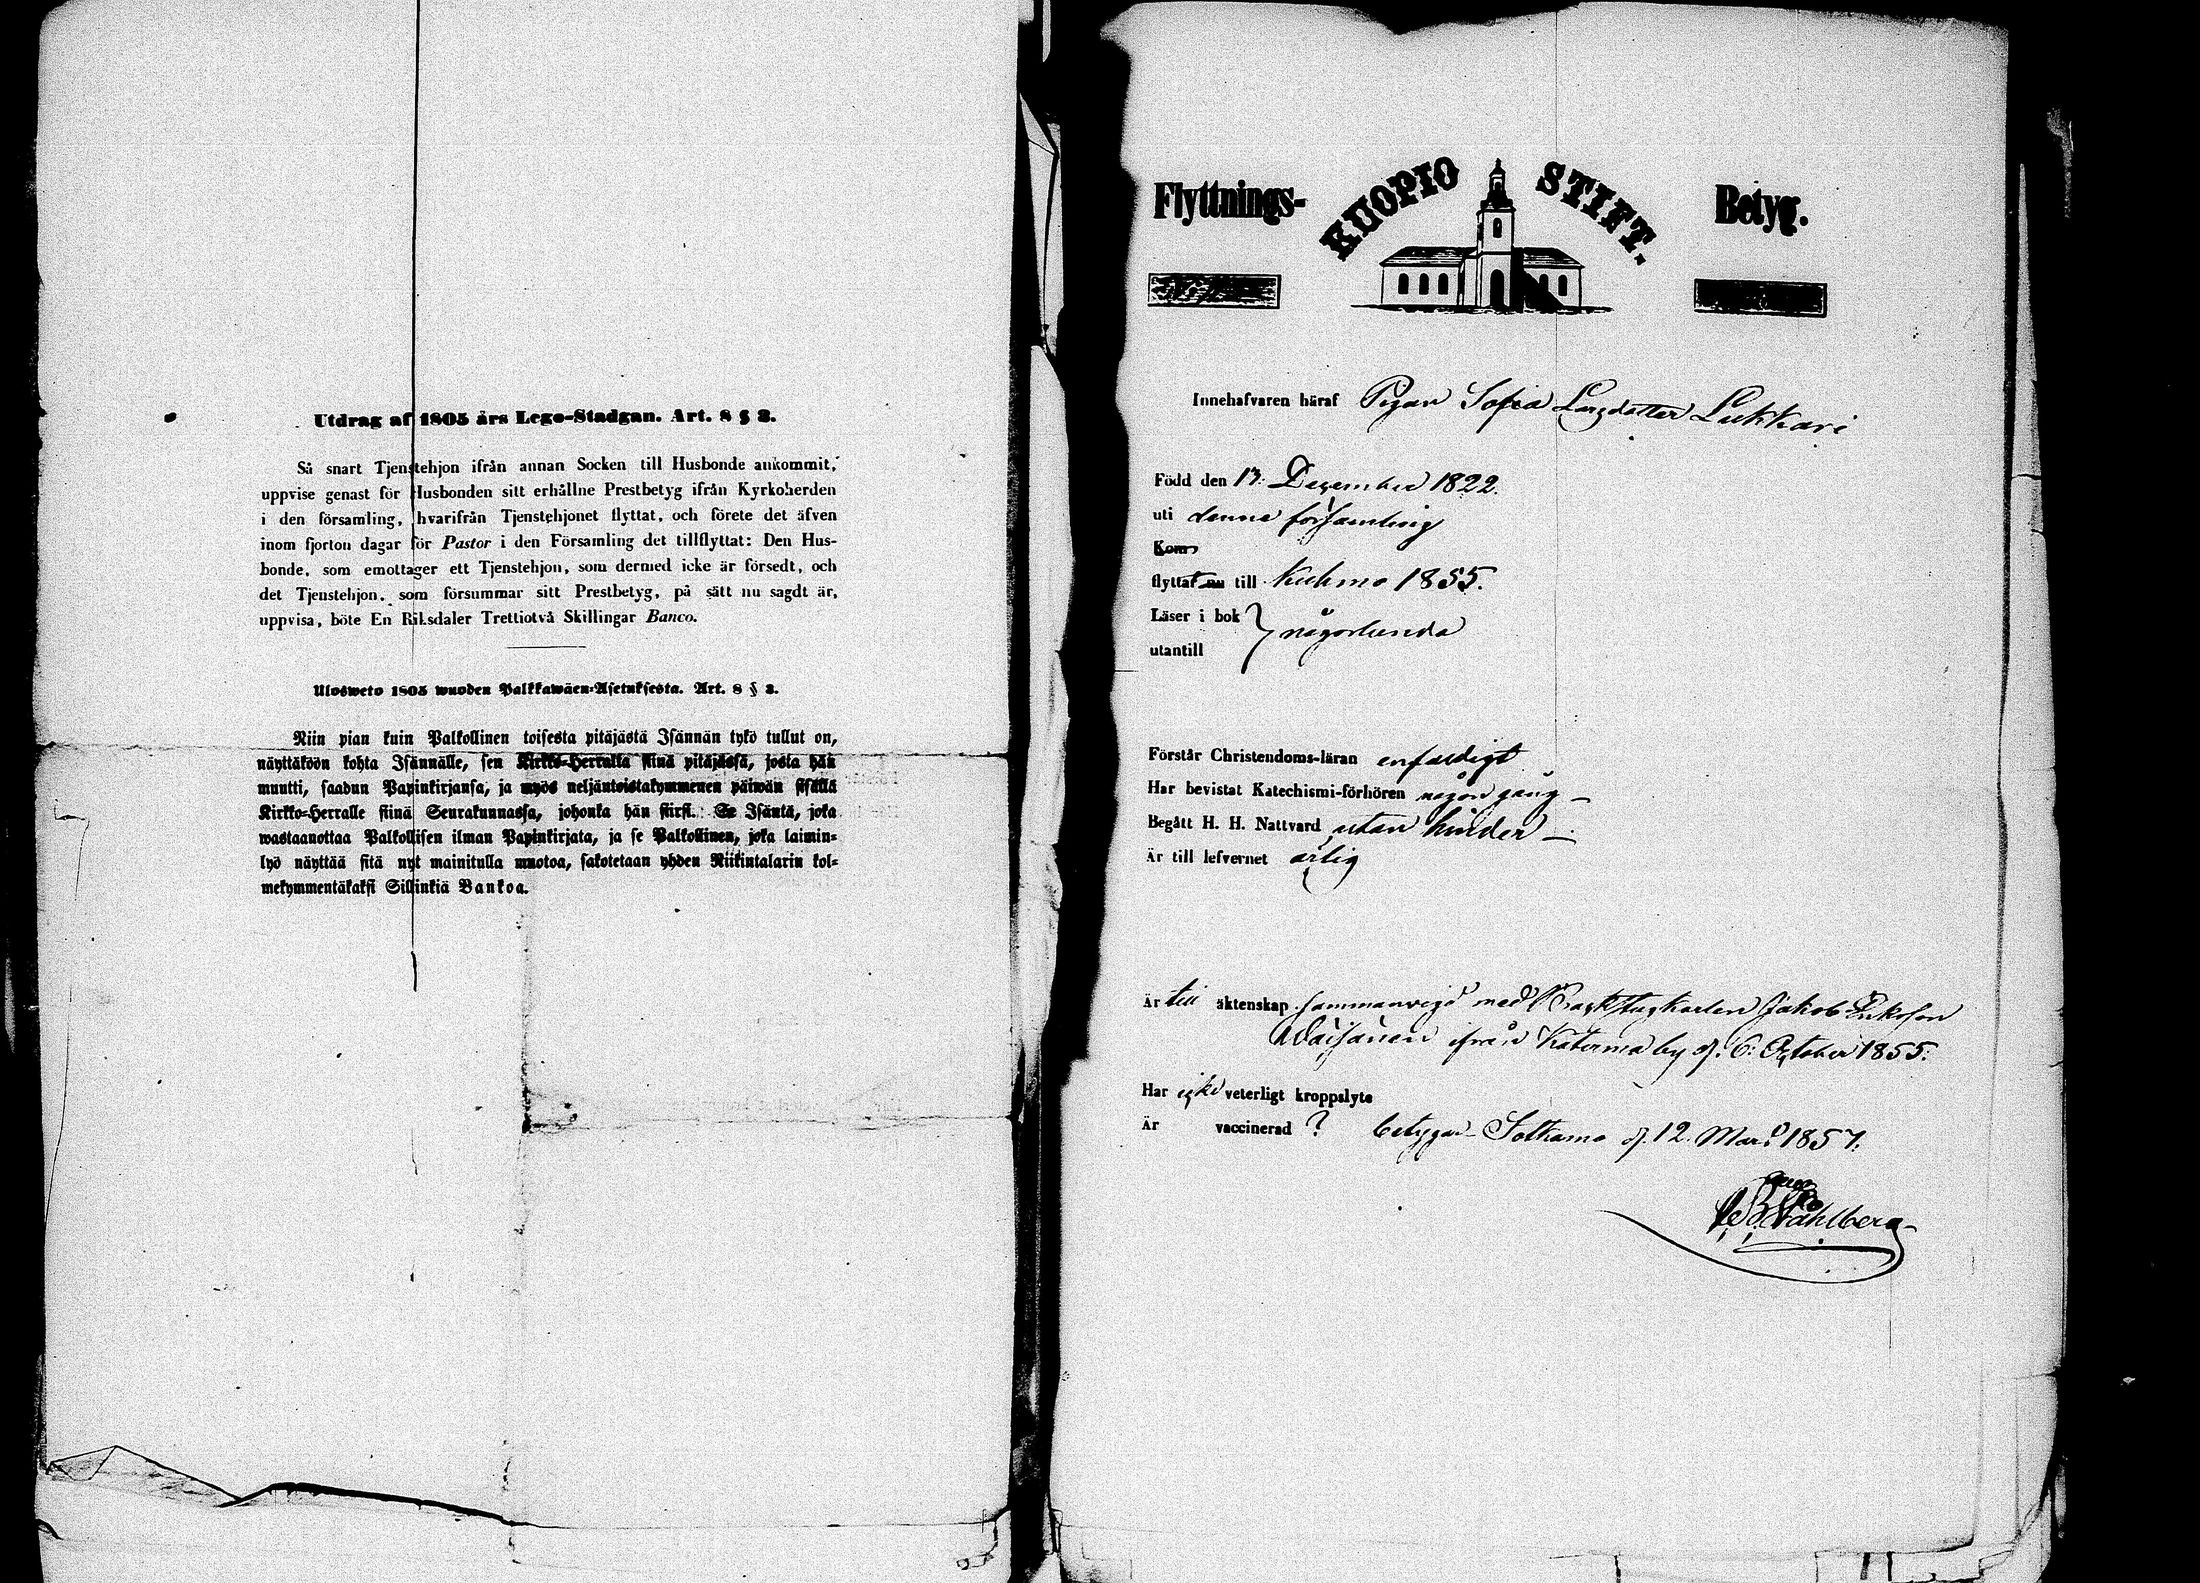 Utdrag af 1805 års Lego-Stadgan. Art. 8 § 3.
Så snart Tjenstehjon ifrån annan Socken till Husbonde ankommit,
uppvise genast för Husbonden sitt erhållne Prestbetyg ifrån Kyrkoherden
i den församling, hvarifrån Tjenstehjonet flyttat, och förete det äfven
inom fjorton dagar för Pastor i den Församling det tillflyttat: Den Hus-
bonde, som emottager ett Tjenstehjon, som dermed icke är försedt, och
det Tjenstehjon, som försummar sitt Prestbetyg, på sätt nu sagdt är,
uppvisa, böte En Riksdaler Trettiotvå Skillingar Banco.
Ulosweto 1805 wuoden Palkkawäen-Asetuksesta. Art. 8 § 3.
Niin pian kuin Palkollinen toisesta pitäjästä Isännän tykö tullut on,
näyttäköön kohta Isännälle, sen Kirkko-Herralta siinä pitäjässä, josta hän
muutti, saadun Papinkirjansa, ja myös neljäntoistakymmenen päiwän sisällä
Kirkko-Herralle siinä Seurakunnassa, johonka hän siirsi. Se Isäntä, joka
wastaanottaa Palkollisen ilman Papinkirjata, ja se Palkollinen, joka laimin-
lyö näyttää sitä nyt mainitulla muotoa, sakotetaan yhden Riikintalarin kol-
mekymmentäkaksi Sillinkiä Bankoa.
Flyttnings- KUOPIO STIFT. Betyg.
Innehafvaren häraf Pigan Sofia Larsdotter Lukkari
Född den 13. December 1822.
uti denna församling
Kom
flyttat nu till Kuhmo 1855.
Läser i bok
någorlunda
utantill
Förstår Christendoms-läran enfaldigt
Har bevistat Katechismi-förhören någon gång
Begått H. H. Nattvard utan hinder
Är till lefvernet ärlig
Är till äktenskap sammanvigd med Jakob Eriksson
Väisänen ifrån Katerma by d. 6: October 1855.
Har icke veterligt kroppslyte
Är vaccinerad ? betygar Sotkamo d. 12. Mars 1857.
Ståhlberg